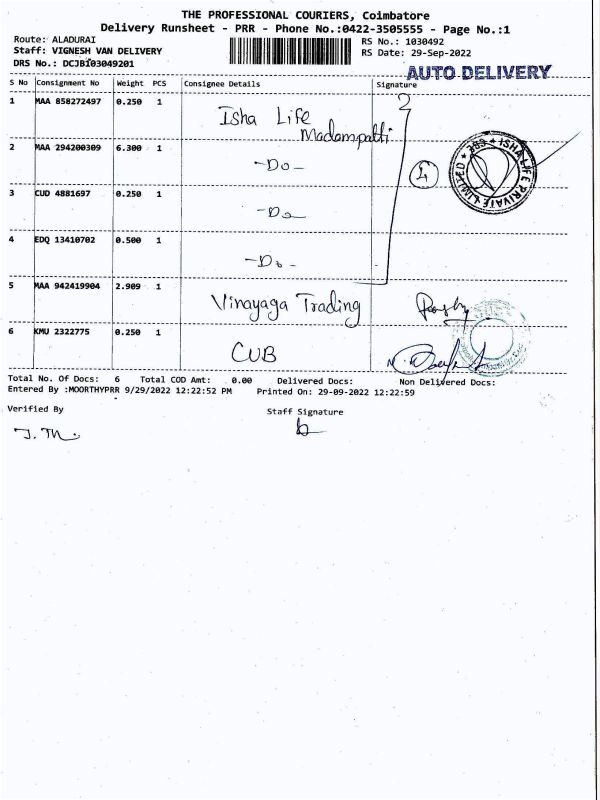 THE PROFESSIONAL COURIERS, Coimbatore
Delivery Runsheet - PRR - Phone No.:0422-3505555 - Page No.:1
Route: ALADURAI
RS No.: 1030492
Staff: VIGNESH VAN DELIVERY
RS Date: 29-Sep-2022
DRS No.: DCJBI03049201
AUTO DELIVERY
S No Consignment No Weight PCS Consignee Details Signature
1 MAA 858272497 0.250 1 Isha Life Madampatti
2 MAA 294200309 6.300 1 -Do-
4
ISHA LIFE PRIVATE LIMITED ★ 383 ★
3 CUD 4881697 0.250 1 -Do
4 EDQ 13410702 0.500 1 -Do-
5 MAA 942419904 2.909 1 Vinayaga Trading
6 KMU 2322775 0.250 1 CUB
Total No. Of Docs: 6 Total COD Amt: 0.00 Delivered Docs: Non Delivered Docs:
Entered By :MOORTHYPRR 9/29/2022 12:22:52 PM Printed On: 29-09-2022 12:22:59
Verified By Staff Signature